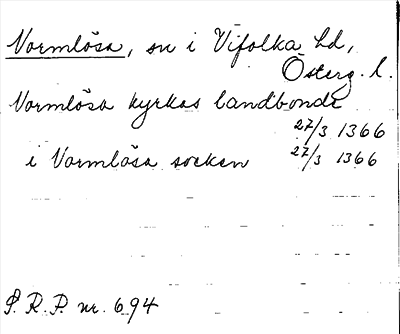 Vormlösa, sn i Vifolka hd,
Österg. l.
Vormlösa kyrkas landbonde
27/3 1366
i Vormlösa socken 27/3 1366
S. R. P. nr. 694